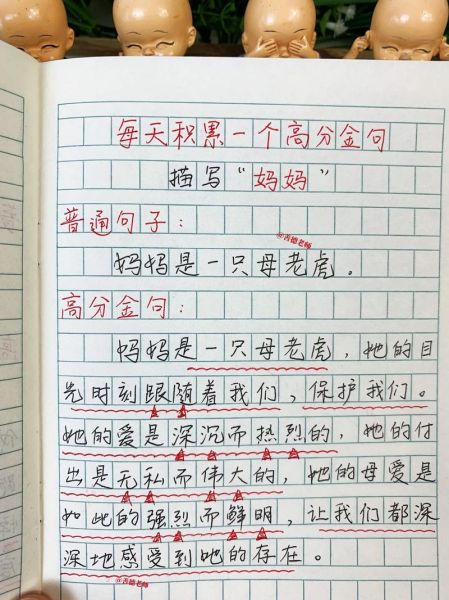 每天积累一个高分金句
描写“妈妈”
普通句子：
@善德老师
妈妈是一只母老虎。
高分金句：
妈妈是一只母老虎，她的目
光时刻跟随着我们，保护我们。
她的爱是深沉而热烈的，她的付
出是无私而伟大的，她的母爱是
如此的强烈而鲜明，让我们都深
深地感受到她的存在。
@善德老师